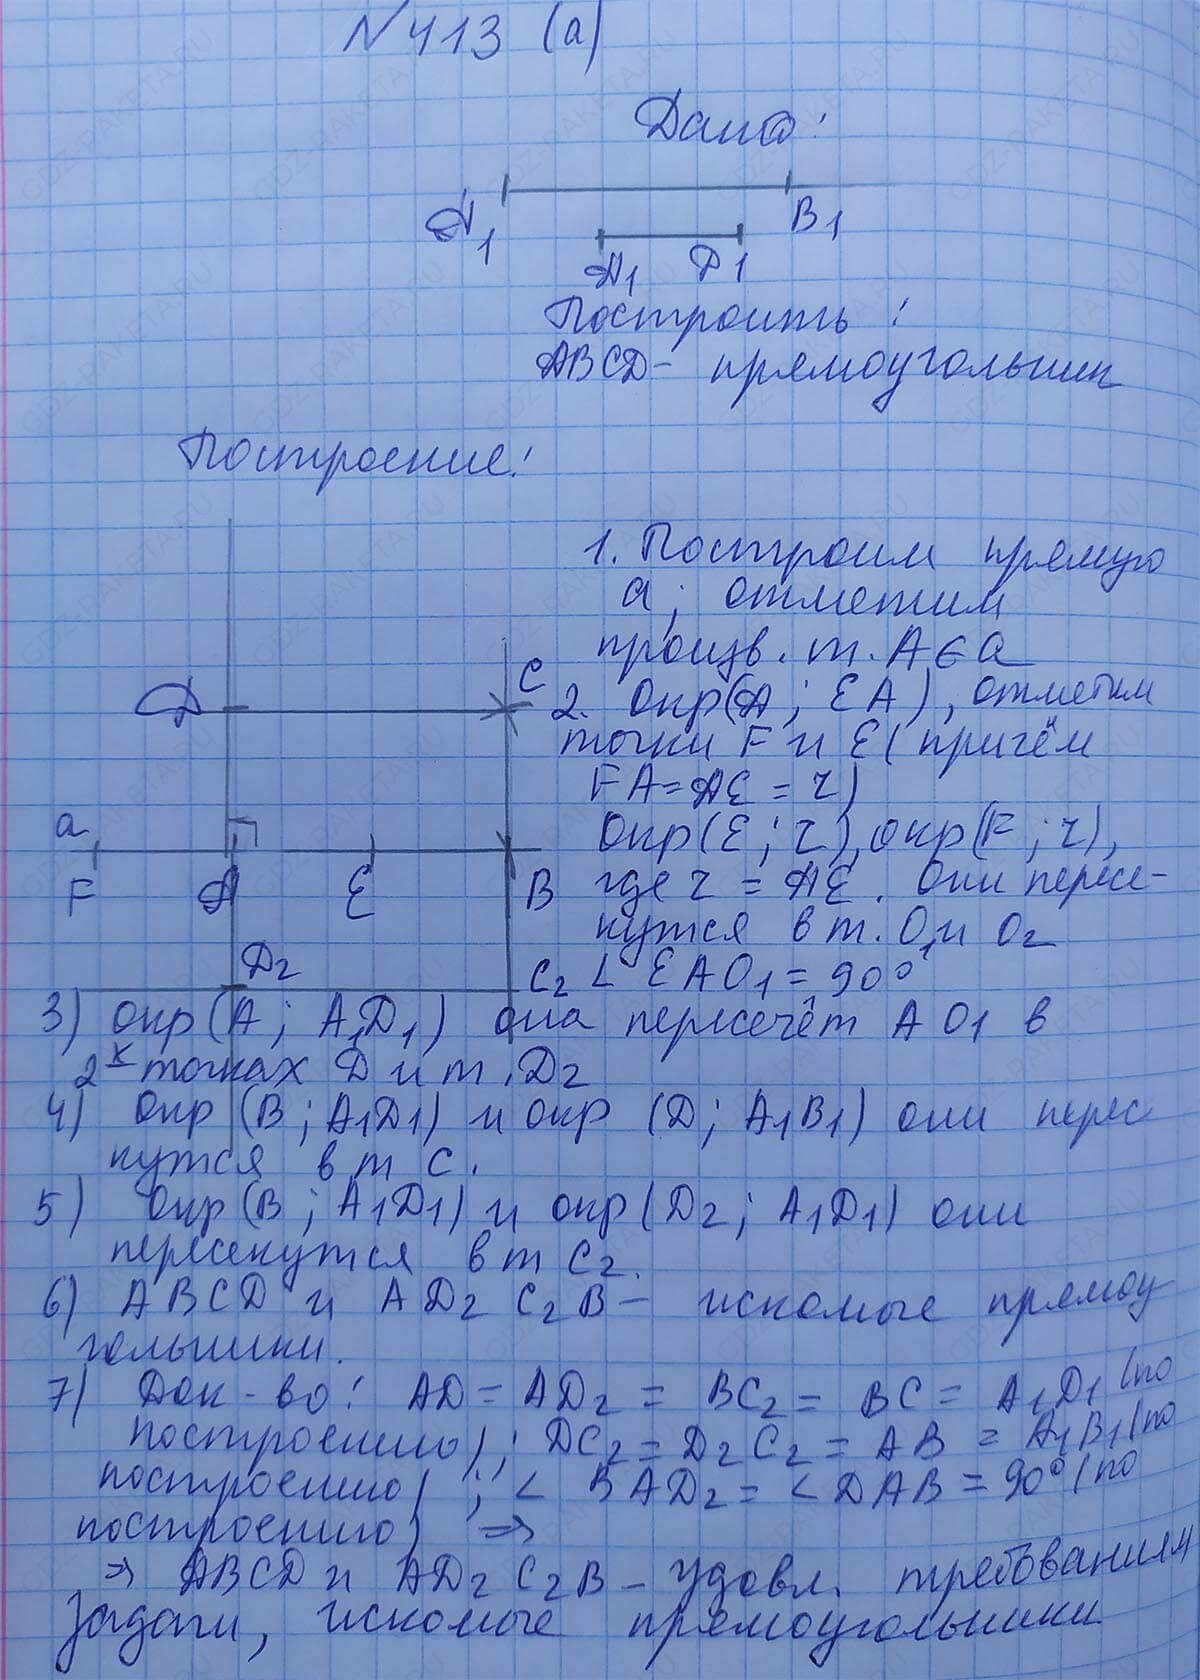 N 413 (а)
Дано:
A1 B1
A1 D1
Построить:
ABCD - прямоугольник
Построение:
1. Построим прямую
a; отметим
произв. т. A ∈ a
D C
2. окр(A; EA), отметим
точки F и E (причём
FA = AE = r)
a
окр(E; r), окр(F; r),
F A E B
где r = AE. Они пересе-
кутся в т. O1 и O2
D2 C2
∠ EAO1 = 90°
3) окр(A; A1D1) она пересечёт AO1 в
2х точках D и т. D2
4) окр (B; A1D1) и окр (D; A1B1) они перес
кутся в т C.
5) окр(B; A1D1) и окр(D2; A1D1) они
пересекутся в т C2.
6) ABCD и AD2 C2B - искомые прямоу
гольники.
7) Док-во: AD = AD2 = BC2 = BC = A1D1 (по
построению); DC2 = D2C2 = AB = A1B1 (по
построению); ∠ BAD2 = ∠ DAB = 90° (по
построению) ⇒
⇒ ABCD и AD2 C2B - удовл. требованиям
задачи, искомые прямоугольники.